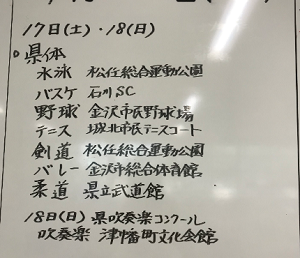 17日(土)・18(日)
県体
水泳 松任総合運動公園
バスケ 石川SC
野球 金沢市民野球場
テニス 城北市民テニスコート
剣道 松任総合運動公園
バレー 金沢市総合体育館
柔道 県立武道館
18日(日) 県吹奏楽コンクール
吹奏楽 津幡町文化会館